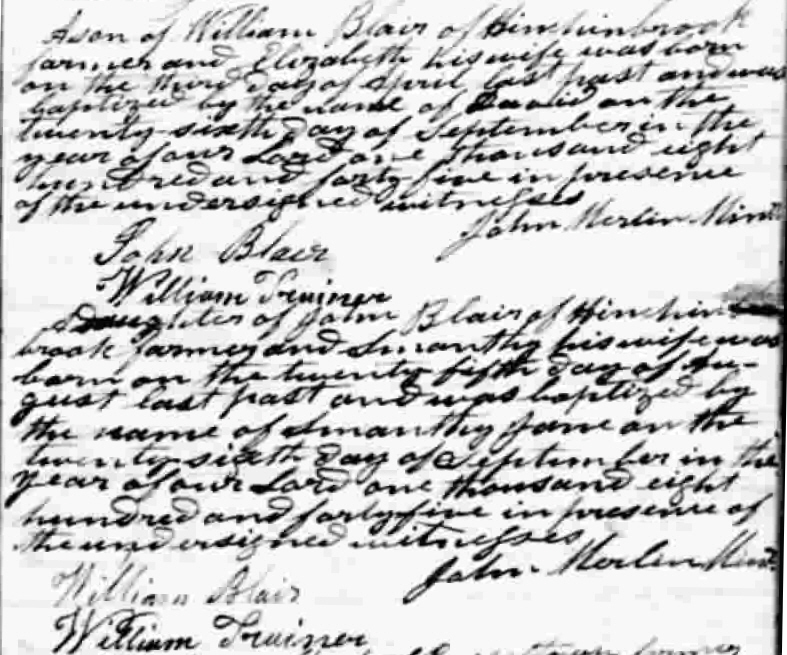 A son of William Blair of Hinchinbrook
farmer and Elizabeth his wife was born
on the third day of April last past and was
baptized by the name of David on the
twenty-sixth day of September in the
year of our Lord one thousand eight
hundred and forty-five in presence
of the undersigned witnesses
John Merlin Minr
John Blair
William Trainer
A daughter of John Blair of Hinchin
brook farmer and Smanthy his wife was
born on the twenty fifth day of Au-
gust last past and was baptized by
the name of Smanthy Jane on the
twenty-sixth day of September in the
year of our Lord one thousand eight
hundred and forty five in presence of
the undersigned witnesses
John Merlin Minr
William Blair
William Trainer
farmer